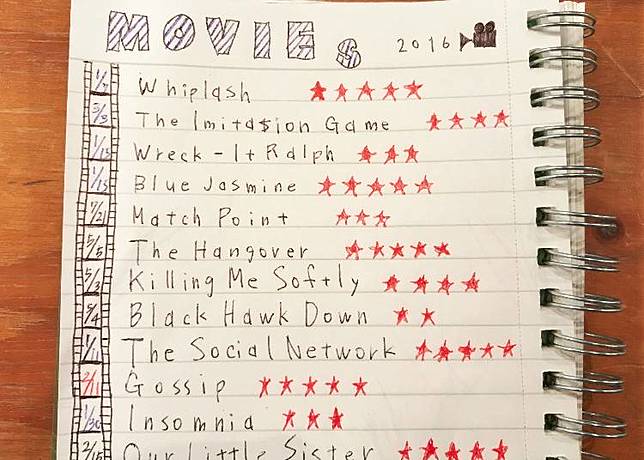 MOVIES 2016
Whiplash
The Imita$ion Game
1/15 Wreck-It Ralph
1/15 Blue Jasmine
Match Point
5/5 The Hangover
5/3 Killing Me Softly
Black Hawk Down
1/11 The Social Network
2/11 Gossip
1/30 Insomnia
2/15 Our Little Sister